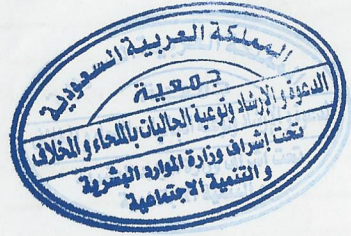 المملكة العربية السعودية
جمعية
الدعوة والإرشاد وتوعية الجاليات باللحاء والخلائف
تحت إشراف وزارة الموارد البشرية
و التنمية الاجتماعية